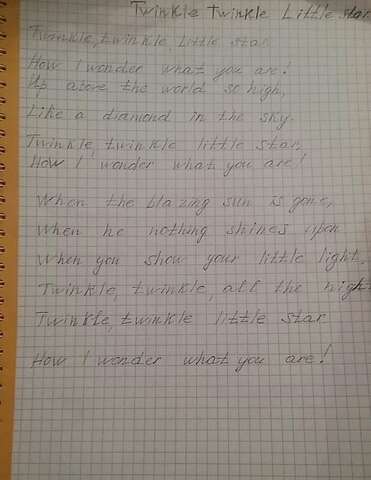 Twinkle Twinkle Little star
Twinkle, twinkle, little star
How I wonder what you are!
Up above the world so high,
Like a diamond in the sky.
Twinkle, twinkle little star,
How I wonder what you are!
When the blazing sun is gone,
When he nothing shines upon
When you show your little light,
Twinkle, twinkle, all the night
Twinkle, twinkle little star
How I wonder what you are!